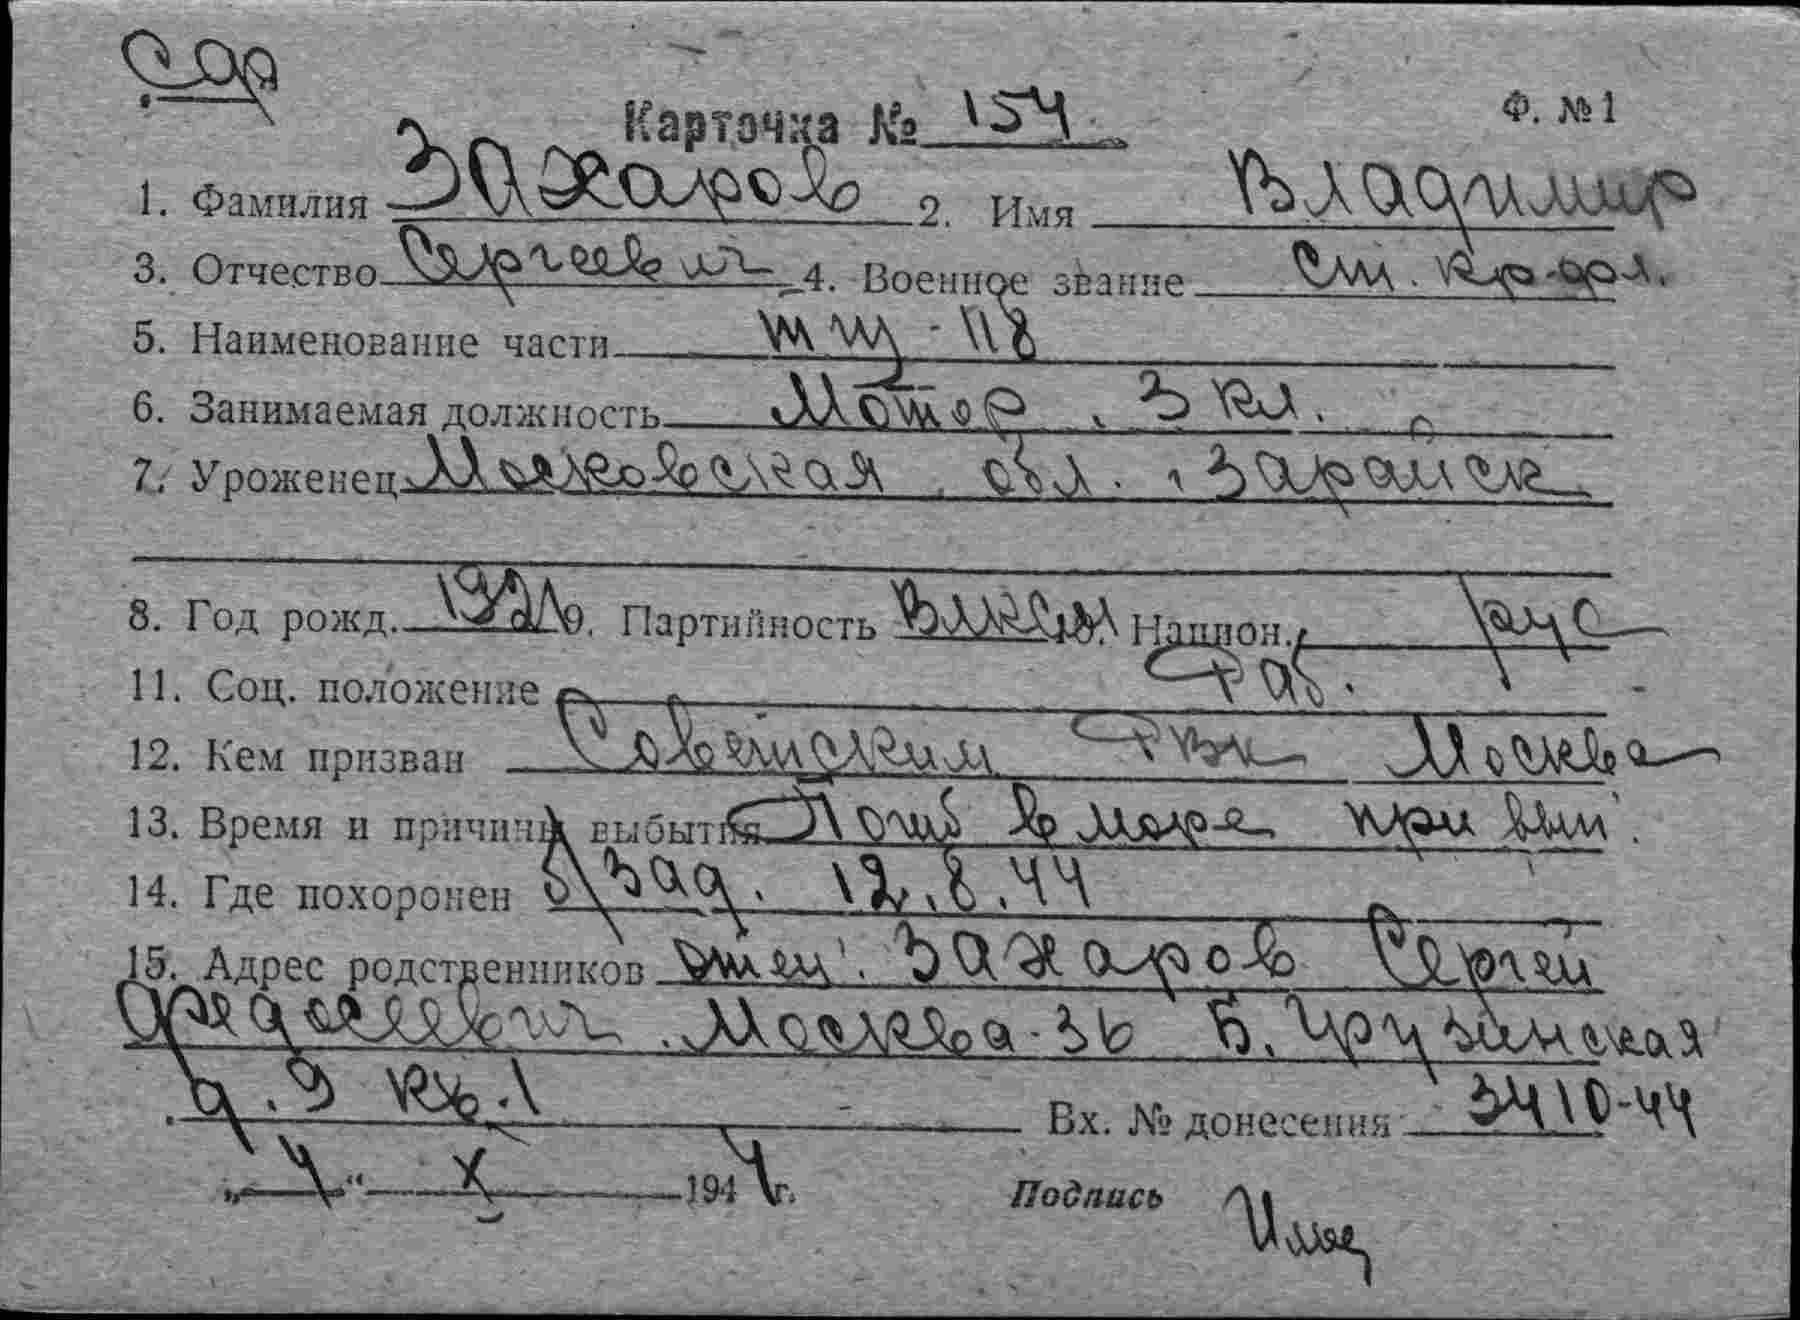 Карточка № 154 Ф. № 1
1. Фамилия Захаров 2. Имя Владимир
3. Отчество Сергеевич 4. Военное звание Ст. кр-фл.
5. Наименование части тщ-118
6. Занимаемая должность Мотор. 3 кл.
7. Уроженец Московская обл. г Зарайск
8. Год рожд. 1921 9. Партийность ВЛКСМ 10. Национ. рус
11. Соц. положение Раб.
12. Кем призван Советским РВК Москва
13. Время и причины выбытия Погиб в море при вып.
14. Где похоронен б/зад. 12.8.44
15. Адрес родственников отец. Захаров Сергей
Федосеевич. Москва-36 Б. Грузинская
д. 9 кв. 1 Вх. № донесения 3410-44
„4“ X 1944г. Подпись